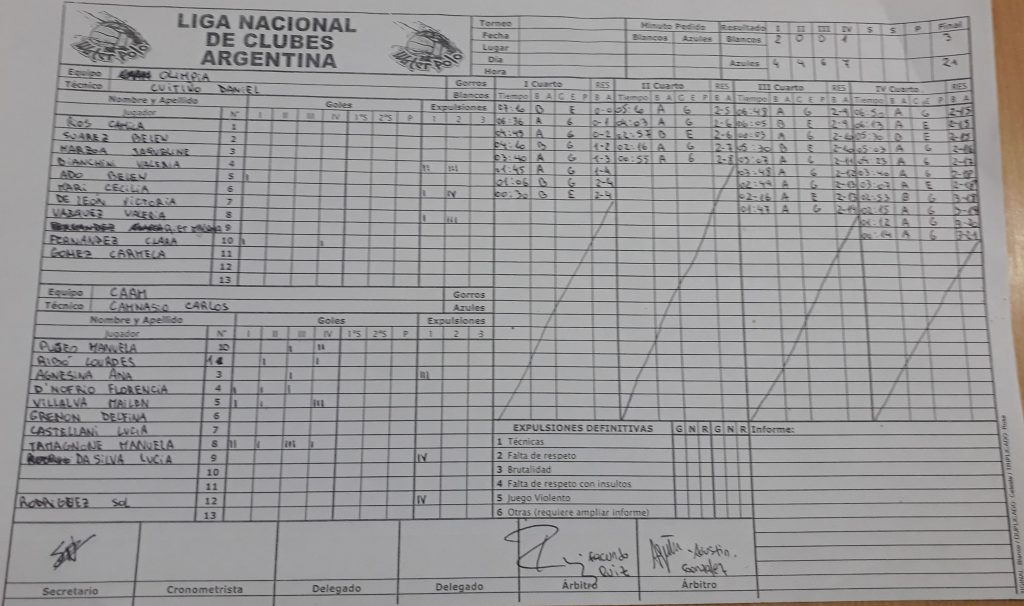 LIGA NACIONAL
DE CLUBES
ARGENTINA
Torneo
Fecha
Lugar
Dia
Hora
Minuto Pedido
Blancos Azules
Resultado I II III IV S S P Final
Blancos 2 0 0 1 3
Azules 4 4 6 7 21
Equipo OLIMPIA
Técnico CUITIÑO DANIEL
Gorros
Blancos
Nombre y Apellido Goles Expulsiones
Jugador N° I II III IV 1°S 2°S P 1 2 3
RIOS CAMILA 1
SUAREZ BELEN 2
JAQUELINE 3
BIANCHINI VALERIA 4 II III
ADO BELEN 5 I
MARI CECILIA 6 I IV
DE LEON VICTORIA 7
VAZQUEZ VALERIA 8 I III
9
FERNANDEZ CLARA 10 I I
GOMEZ CARMELA 11
12
13
I Cuarto RES II Cuarto RES III Cuarto RES IV Cuarto RES
Tiempo B A C E P B A Tiempo B A C E P B A Tiempo B A C E P B A Tiempo B A C E P B A
B E 0-0 A G 2-5 06:48 A G 2-9 06:50 A G 2-15
06:36 A G 0-1 04:03 A G 2-6 06:05 B E 2-9 A E 2-15
A G 0-2 B E 2-6 A G B E 2-15
B G 1-2 02:16 A G 2-7 05:30 B E 05:03 A G 2-16
03:40 A G 1-3 00:55 A G 2-8 03:07 A G 2-11 A G 2-17
01:45 A G 1-4 03:48 A G 2-12 03:40 A G 2-18
01:06 B G 2-4 02:44 A G 2-13 03:07 A E 2-18
00:30 B E 2-4 02:16 A E 2-13 02:53 B G 3-18
01:47 A G 2-14 02:15 A G 3-19
A G 3-20
00:14 A G 3-21
Equipo CAAM
Técnico CAMNASIO CARLOS
Gorros
Azules
Nombre y Apellido Goles Expulsiones
Jugador N° I II III IV 1°S 2°S P 1 2 3
MANUELA I II
LOURDES I I
AGNESINA ANA 3 I III
D'NOFRIO FLORENCIA 4 I I I
VILLALVA MAILEN 5 I I III
GRENON DELFINA 6
CASTELLANI LUCIA 7
TAMAGNONE MANUELA 8 II I IIII I
DA SILVA LUCIA 9 IV
10
11
RODRIGUEZ SOL 12 IV
13
EXPULSIONES DEFINITIVAS G N R G N R Informe:
1 Técnicas
2 Falta de respeto
3 Brutalidad
4 Falta de respeto con insultos
5 Juego Violento
6 Otras (requiere ampliar informe)
Facundo
Ruiz
Agustin
Gonzalez
Secretario Cronometrista Delegado Delegado Árbitro Árbitro